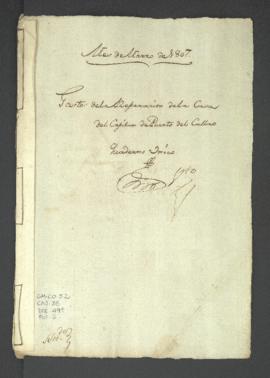 Mes de Enero de 1807
Gasto de la Reparacion de la Casa
del Capitan de Puerto del Callao
Quaderno Unico
GM-CO 52
CAJ. 38
DOC. 491
FOL. 2